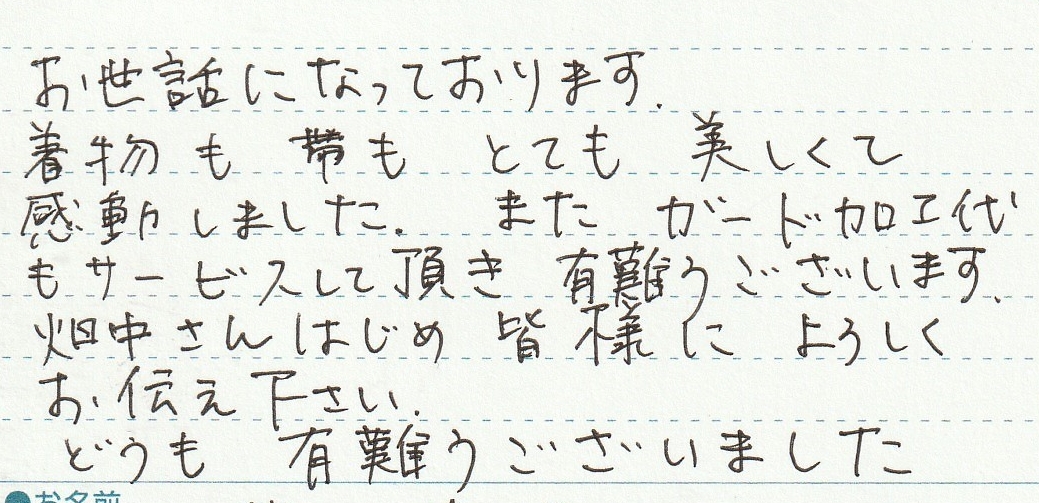 お世話になっております.
着物も 帯も とても 美しくて
感動しました. また ガード加工代
もサービスして頂き 有難うございます.
畑中さんはじめ 皆様に よろしく
お伝え下さい.
どうも 有難うございました
●お名前